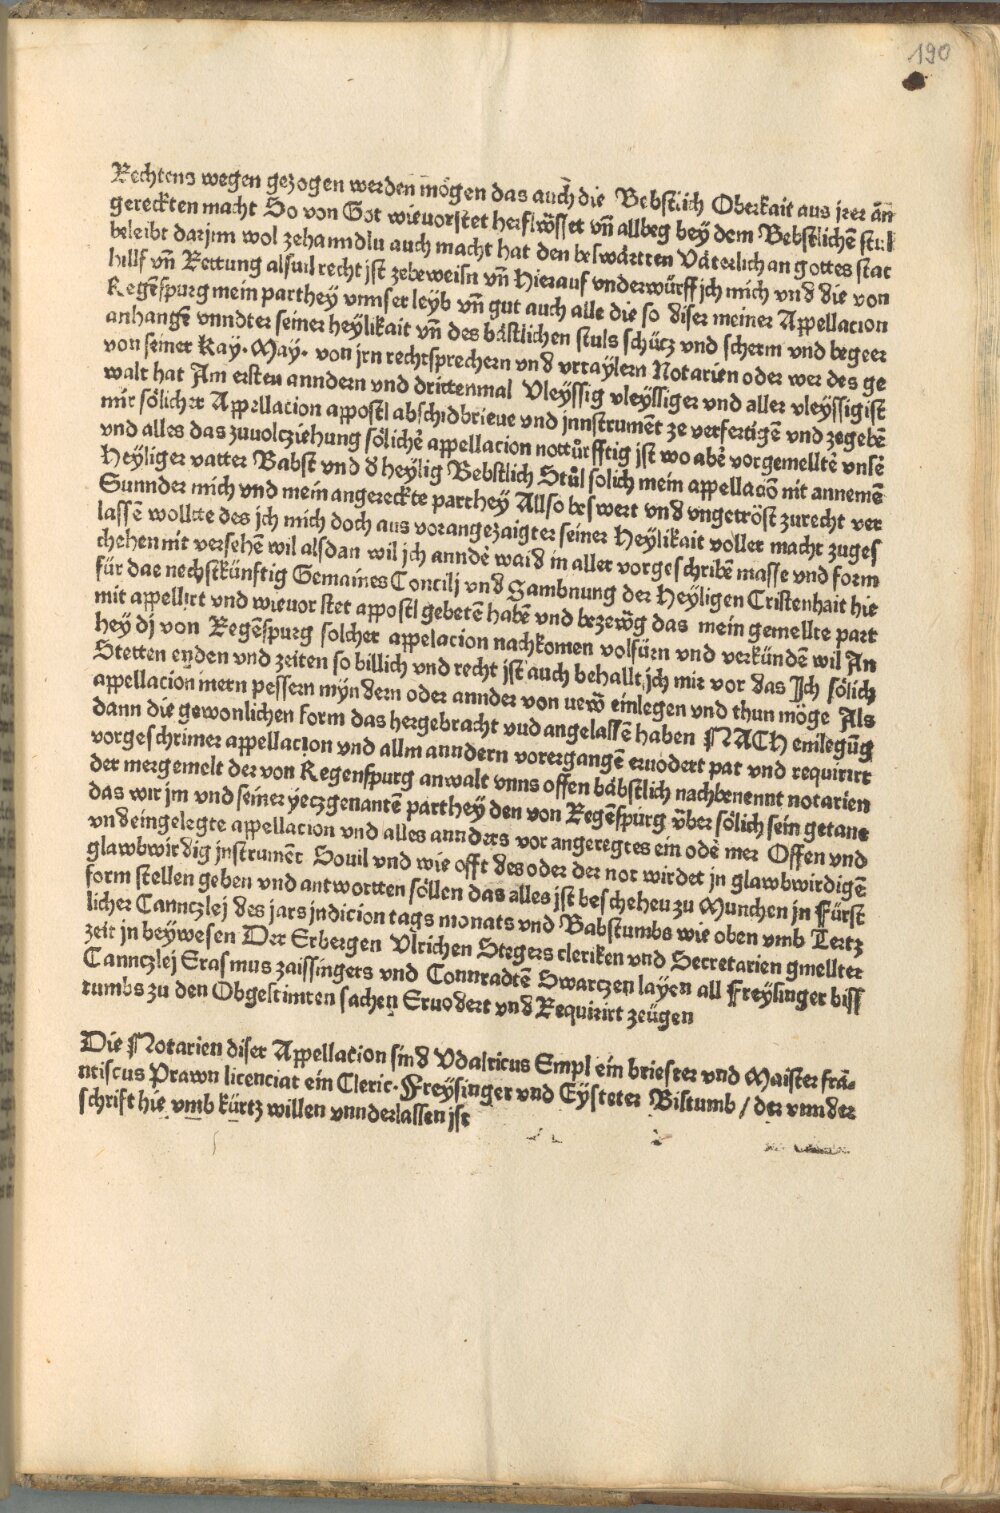 190
Rechtens wegen gezogen werden mögen das auch die Bebstlich Oberkait aus jrer an̄
gereckten macht So von Got wieuorstet herflw̎sset vn̄ allbeg bey dem Bebstlichē stul
beleibt darjnn wol zehanndlu auch macht hat den beswärtten Väterlich an gottes stat
hillf vn̄ Rettung alsuil recht jst zebeweisn vn̄ Hierauf vnderwürff jch mich vnd die von
Regēspurg mein parthey vnnser leyb vn̄ gut auch alle die so diser meiner Appellacion
anhangē vnndter seiner heylikait vn̄ des bästlichen stuls schücz vnd scherm vnd begeer
von seiner Kay. May. von jrn rechtsprechern vnd vrtaylern Notarien oder wer des ge
walt hat Am ersten anndern vnd drittenmal Vleyssig vleyssiger vnd aller vleyssigist
mir sölicher Appellacion appostl abschidbrieue vnd jnnstrumēt ze verfertigē vnd zegebē
vnd alles das zuuolcziehung sölichē appellacion nottůrfftig jst wo abē vorgemelltē vnsē
Heyliger vatter Babst vnd d heylig Bebstlich Stůl solich mein appellaciō nit annemē
Sunnder mich vnd mein angereckte parthey Allso beswert vnd vngetröst zurecht ver
lassē wolltte des jch mich doch aus vorangezaigter seiner Heylikait voller macht zuges
chehen nit versehē wil alsdan wil jch anndē waid in aller vorgeschribē masse vnd form
für dae nechstkünftig Gemaines Concilj vnd Sambnung der Heyligen Cristenhait hie
mit appellirt vnd wieuor stet appostl gebetē habē vnd bezew̄g das mein gemellte part
hey dj von Regēspurg solcher appelacion nachkomen volfürn vnd verkündē wil An
Stetten enden vnd zeiten so billich vnd recht jst auch behallt jch mir vor das Ich sölich
appellacion mern pessern myndern oder annder von uew̄ einlegen vnd thun möge Als
dann die gewonlichen form das hergebracht vud angelassē haben NACH einlegūg
vorgeschrimer appellacion vnd allm anndern vorergangē eruodert pat vnd requirirt
der mergemelt der von Regenspurg anwalt vnns offen bäbstlich nachbenennt notarien
das wir jm vnd seiner yeczgenantē parthey den von Regēspurg v̄ber sölich sein getane
vnd eingelegte appellacion vnd alles annders vor angeregtes ein odē mer Offen vnd
glawbwirdig jnstrumēt Souil vnd wie offt des oder der not wirdet jn glawbwirdigē
form stellen geben vnd antwortten söllen das alles jst bescheheu zu Munchen jn Fürst
licher Cannczlej des jars jndicion tags monats vnd Babstumbs wie oben vmb Tertz
zeit jn beywesen Der Erbergen Vlrichen Stegers cleriken vnd Secretarien gmellter
Cannczlej Erasmus zaissingers vnd Connradtē Swarczen layen all Freysinger biss
tumbs zu den Obgestimten sachen Eruodert vnd Requirirt zeügen
Die Notarien diser Appellation sind Vdalricus Empl ein briester vnd Maister frā-
ntiscus Prawn licenciat ein Cleric. Freysinger vnd Eysteter Bistumb / der vnnder
schrift hie vmb kürtz willen vnnderlassen jst